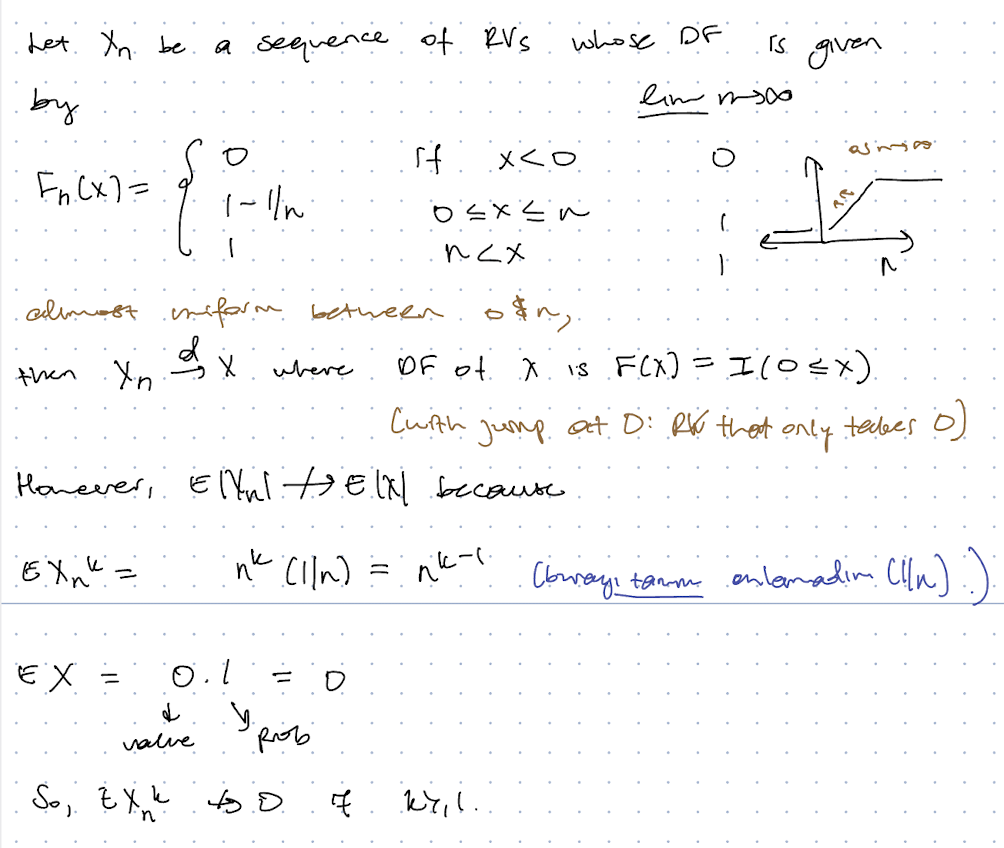 Let Xn be a sequence of RVs whose DF is given
by
lim n→∞
Fn(x) = { 0 if x<0 0
1-1/n 0≤x≤n 1
1 n<x 1
as n→∞
n
almost uniform between 0 & n,
then Xn →d X where DF of X is F(X) = I(0≤x)
(with jump at 0: RV that only takes 0)
However, E|Xn| ↛ E|X| because
EXn^k = n^k (1/n) = n^k-1 (burayı tam anlamadım (1/n) )
EX = 0.1 = 0
value prob
So, EXn^k ↛ 0 if k≥1.